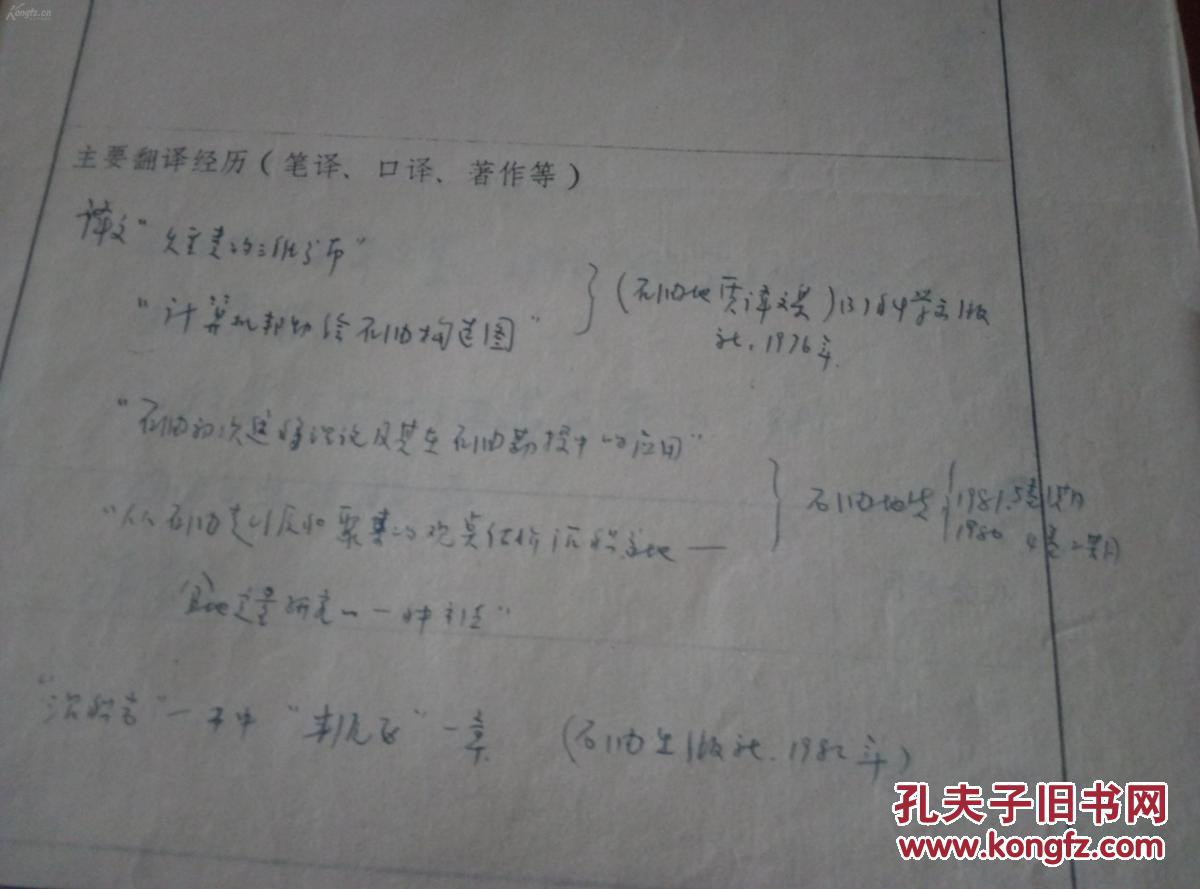 Kongfz.cn
主要翻译经历(笔译、口译、著作等)
译文"的三维分布"
"计算机帮助绘石油构造图"
(石油地质译文集)科学出版
社.1976年.
"石油初次运移理论及其在石油勘探中的应用"
石油地质 1981.5卷1期
1980 4卷2期
"从石油运移和聚集的观点估价沉积盆地—
盆地定量研究的一种方法"
"沉积岩"一书中" "一章 (石油出版社.1982年)
孔夫子旧书网
www.kongfz.com